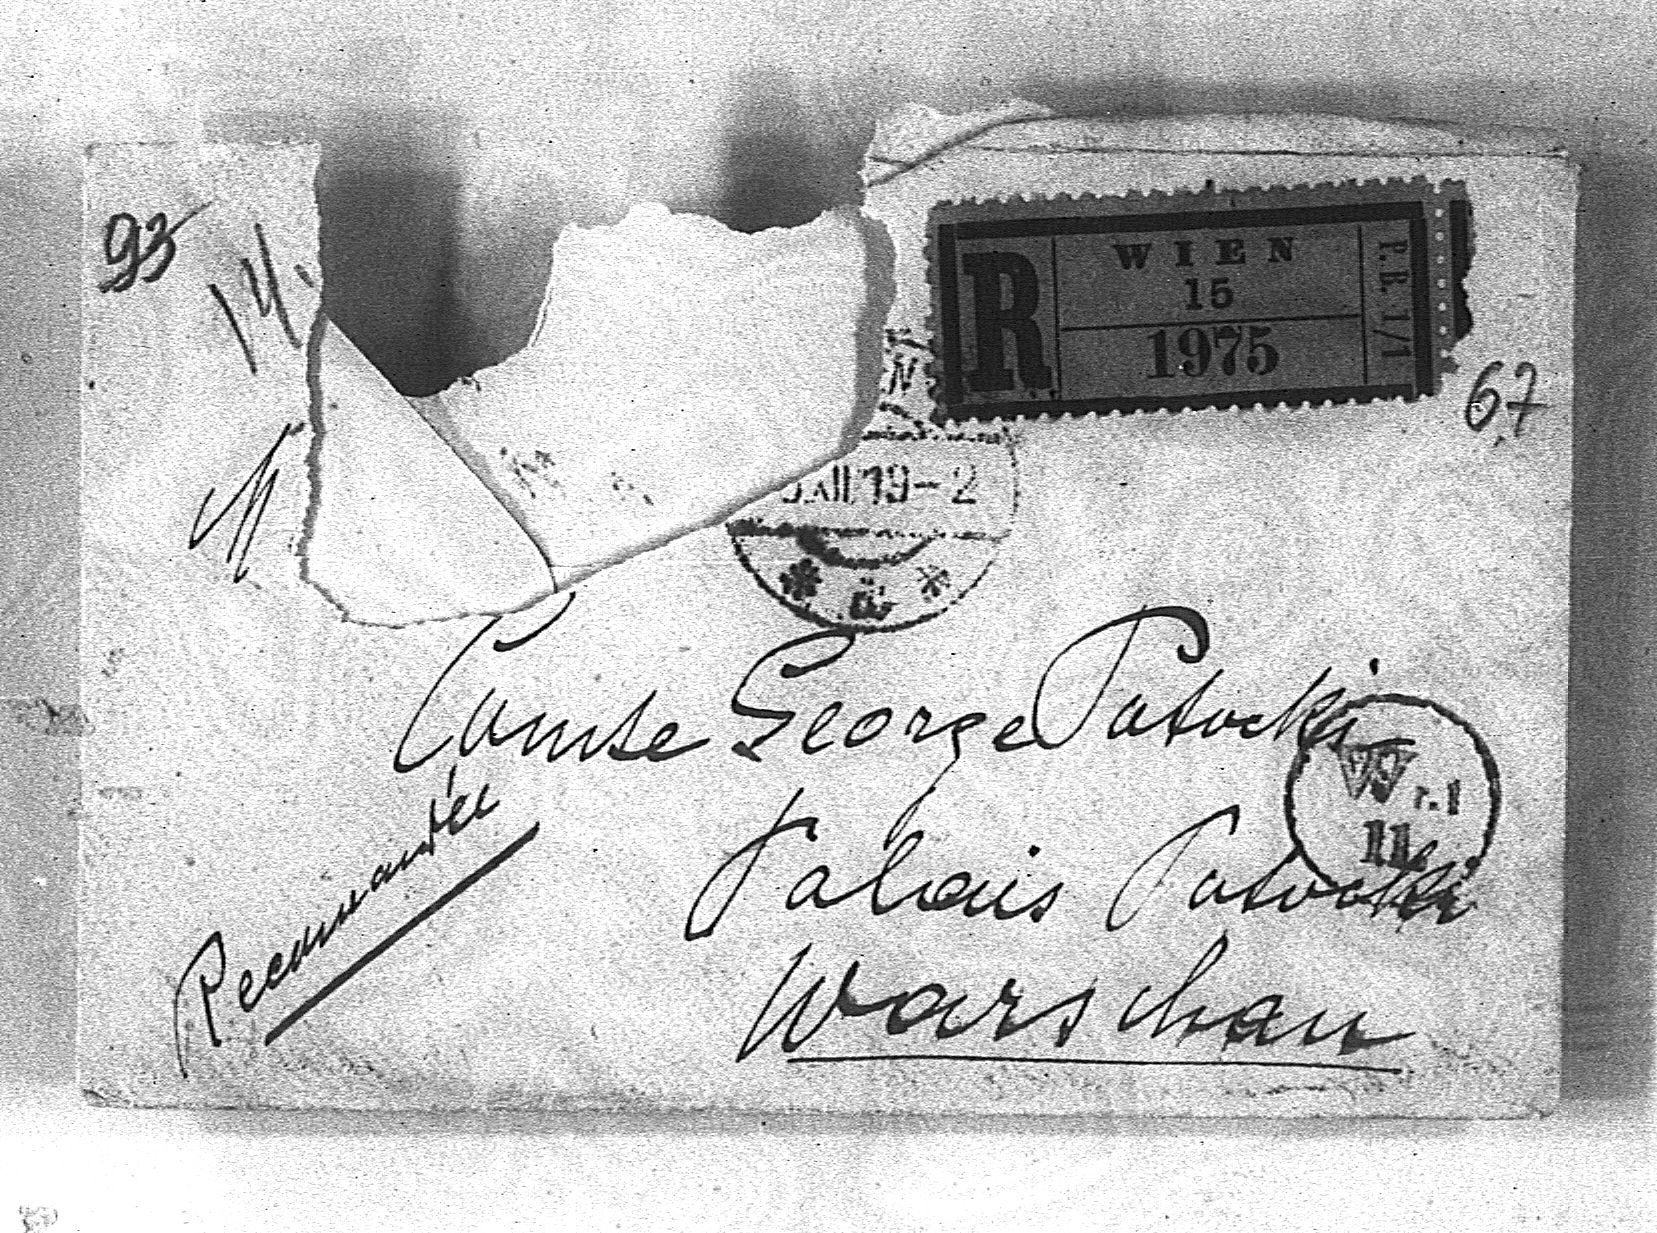 93
14.
R
WIEN
15
1975
P.R. 1/1
67
XII 19-2
* ü *
M
Comte George Potocki
Recommandée
Palais Potocki
Warschau
II.